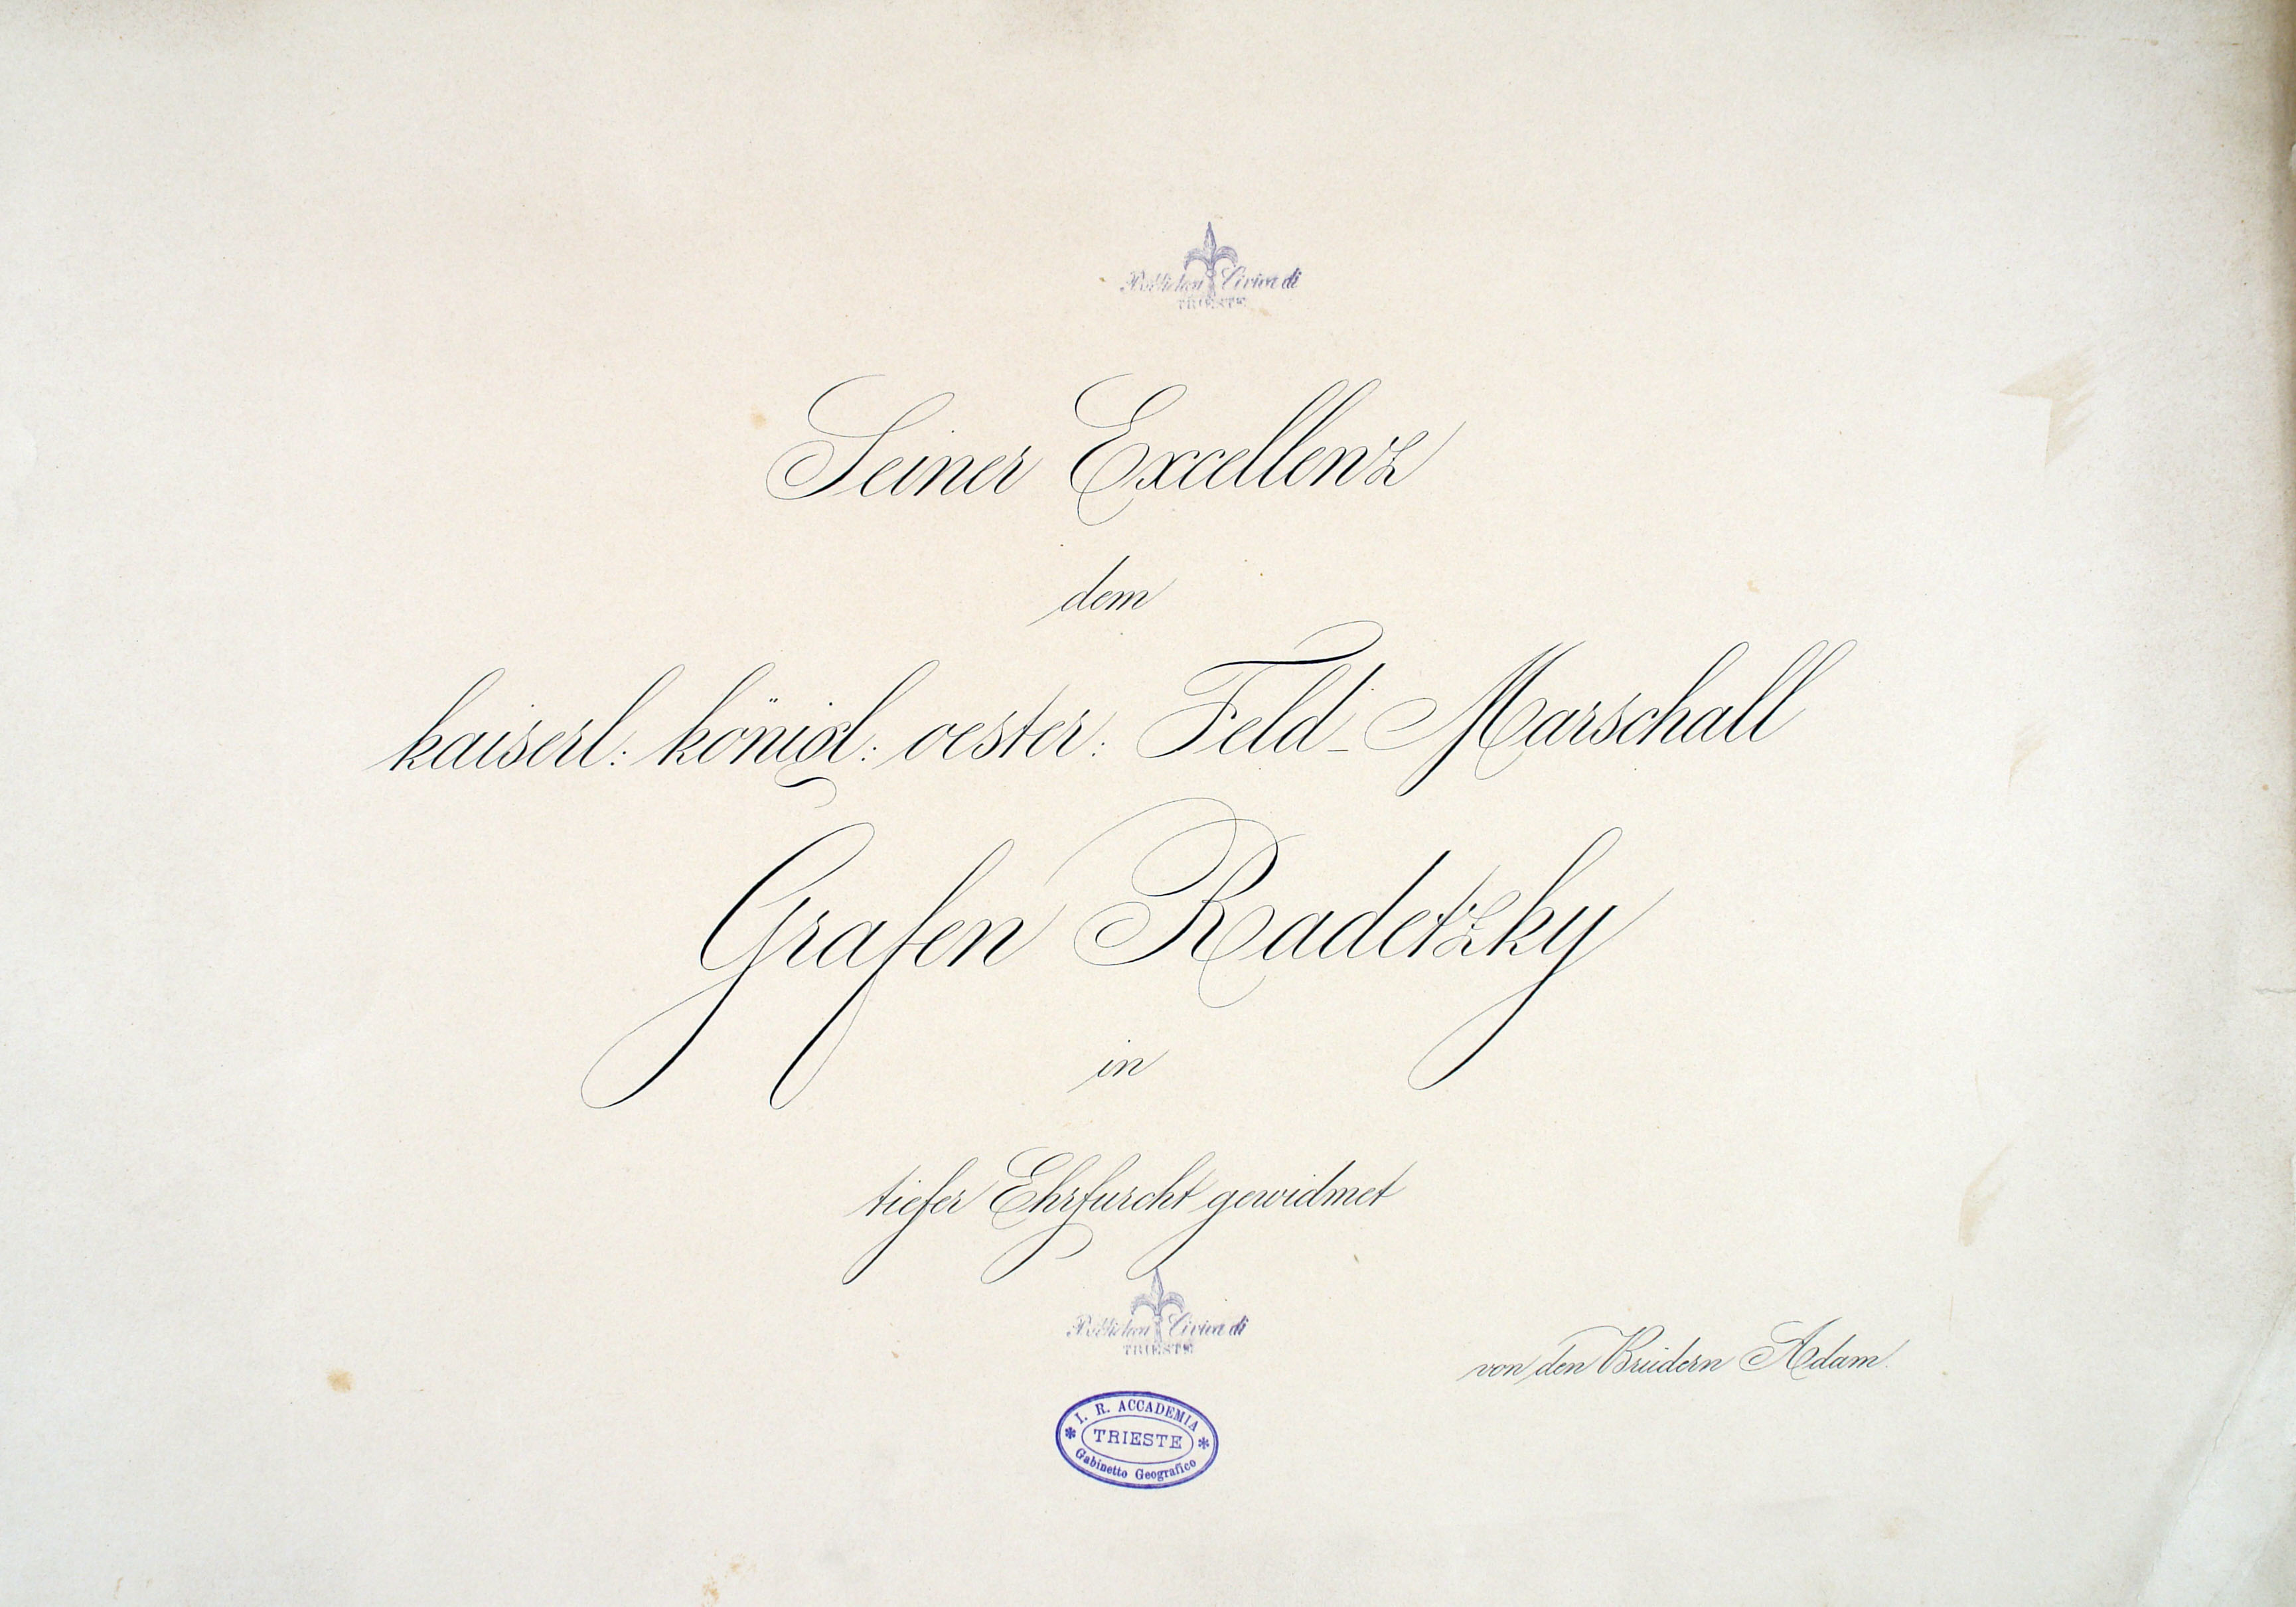 Biblioteca Civica di
TRIESTE
Seiner Excellenz
dem
kaiserl: königl: oester: Feld-Marschall
Grafen Radetzky
in
tiefer Ehrfurcht gewidmet
Biblioteca Civica di
TRIESTE
von den Brüdern Adam.
I. R. ACCADEMIA
TRIESTE
Gabinetto Geografico